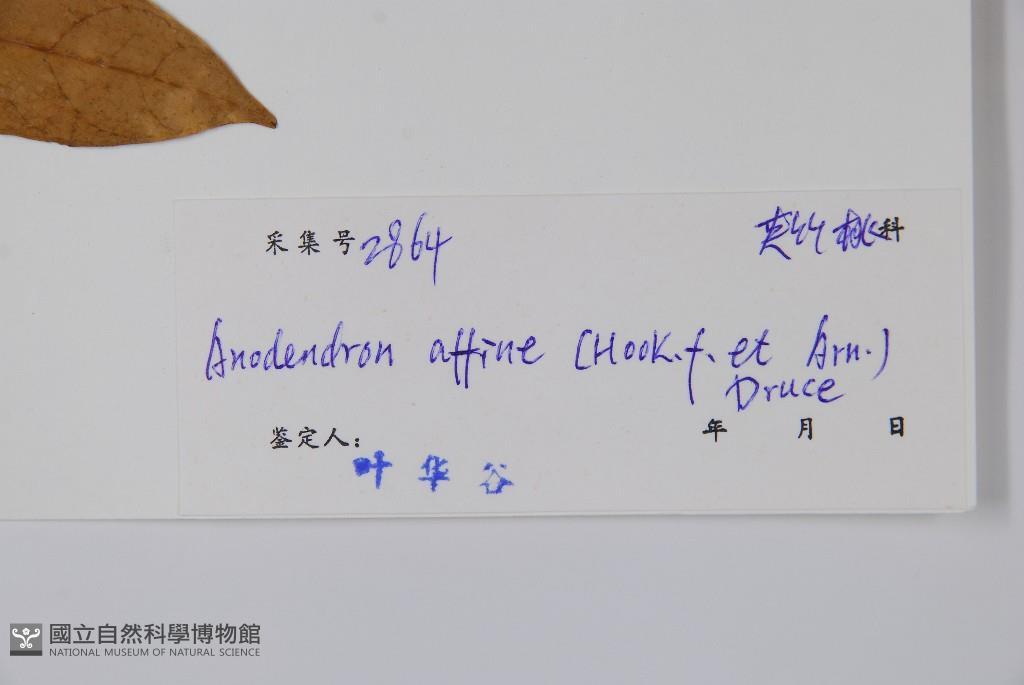 采集号 2864 夹竹桃科
Anodendron affine (Hook.f. et Arn.)
Druce
鉴定人： 年 月 日
叶华谷
國立自然科學博物館
NATIONAL MUSEUM OF NATURAL SCIENCE